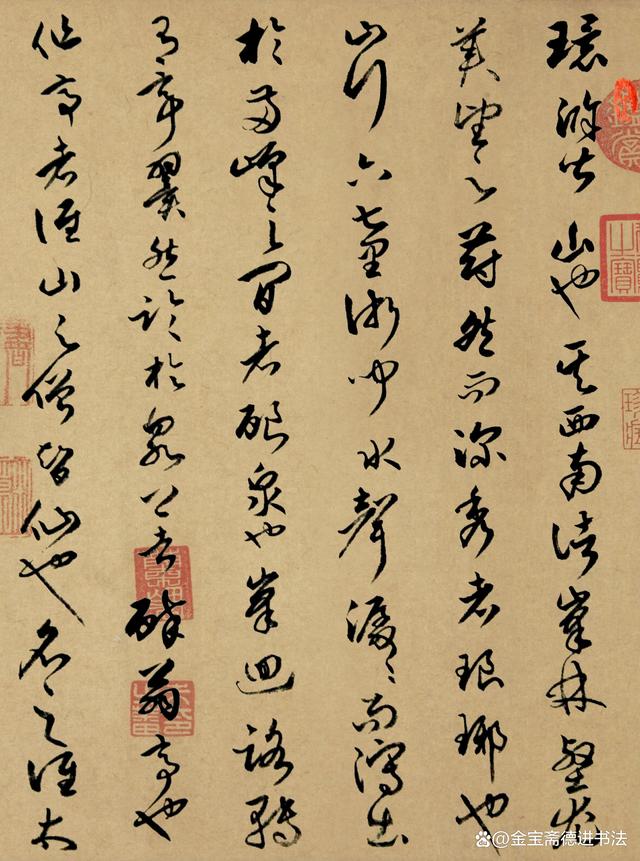 環滁皆山也其西南諸峯林壑尤
美望之蔚然而深秀者琅琊也
山行六七里漸聞水聲潺〻而瀉出
於兩峰之間者釀泉也峯迴路轉
有亭翼然臨於泉上者醉翁亭也
作亭者誰山之僧智仙也名之誰太
@金宝斋德进书法